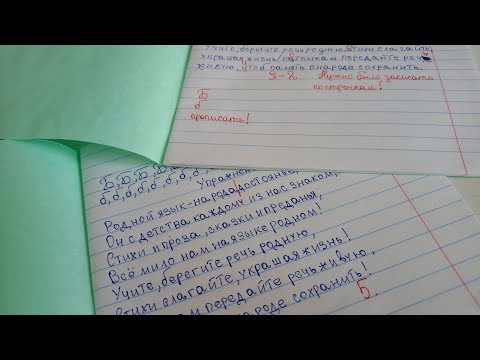 Учите, берегите речь родную, стихи слагайте,
украшая жизнь! потомкам передайте речь
живую, чтоб память о народе сохранить.
Нужно было записать
по строчкам!
Б
б
прописать!
Б, Б, Б, Б, Б
б, б, б, б, б, б, б, б,
Упражнен
Родной язык - народа достоянье,
Он с детства каждому из нас знаком,
Стихи и проза, сказки и преданья,
Всё мило нам на языке родном!
Учите, берегите речь родную,
Стихи слагайте, украшая жизнь!
передайте речь живую,
роде сохранить!
5.